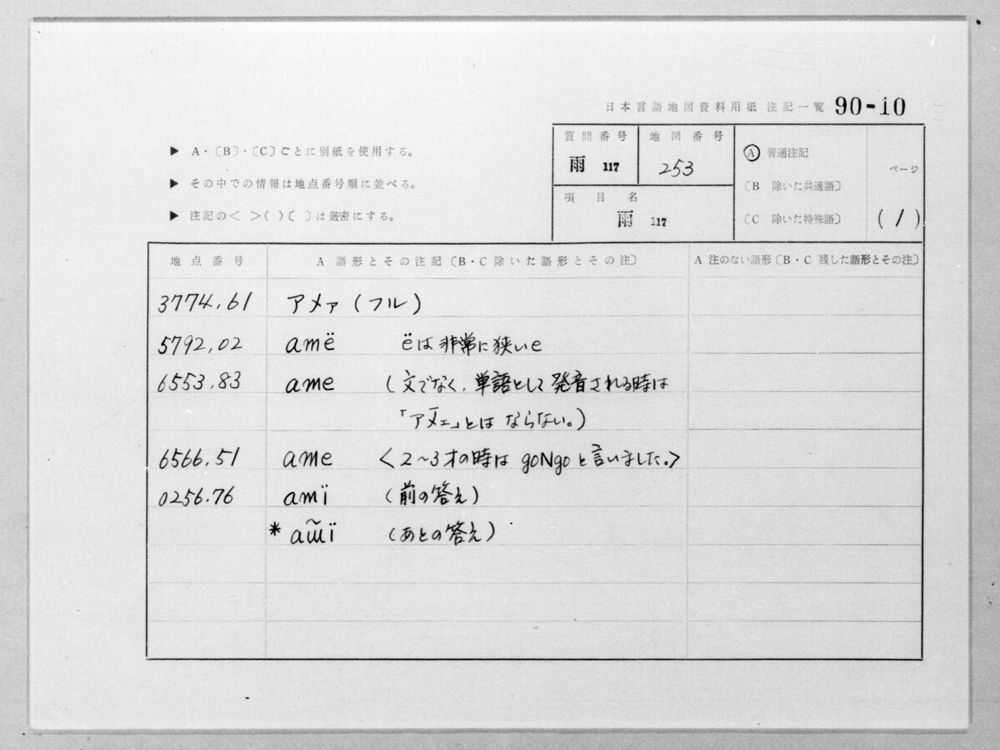 日本言語地図資料用紙 注記一覧 90-10
▶ A・〔B〕・〔C〕ごとに別紙を使用する。
▶ その中での情報は地点番号順に並べる。
▶ 注記の< >( )〔 〕は厳密にする。
質問番号 地図番号
雨 117 253
項目名
雨 117
Ⓐ 普通注記
〔B 除いた共通語〕
〔C 除いた特殊語〕
ページ
(1)
地点番号 A 語形とその注記〔B・C除いた語形とその注〕 A 注のない語形〔B・C 残した語形とその注〕
3774.61 アメァ(フル)
5792.02 amë ëは非常に狭いe
6553.83 ame (文でなく、単語として発音される時は
「アメェ」とはならない。)
6566.51 ame <2~3才の時はgoNgoと言いました。>
0256.76 amï (前の答え)
* aɯ̃ï (あとの答え)